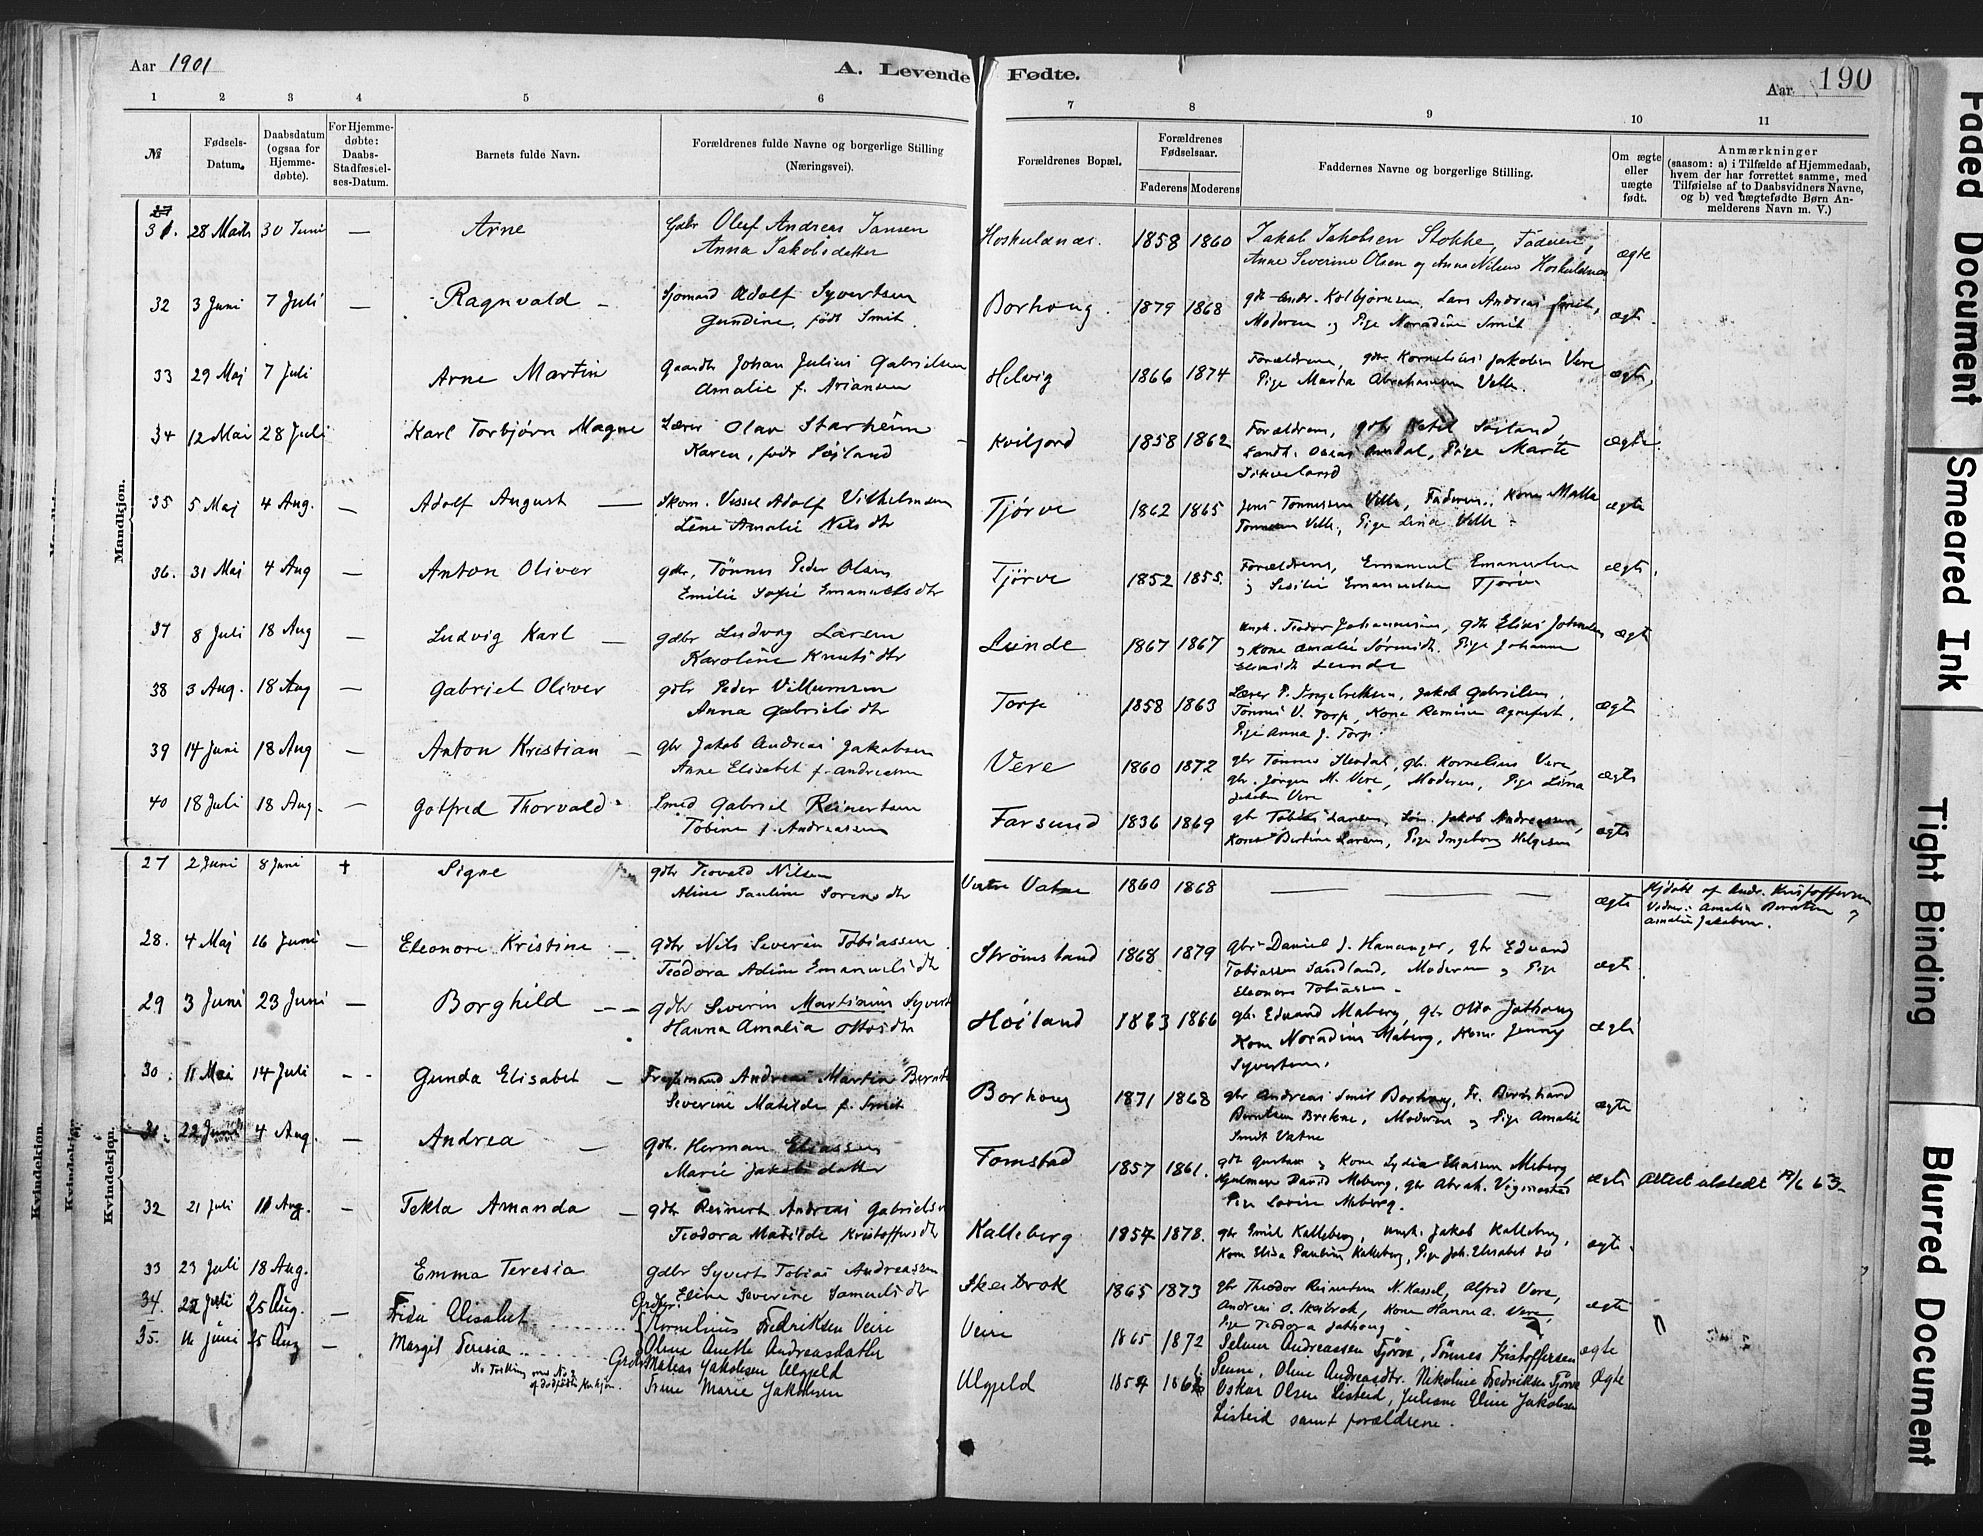 Aar 1901
A. Levende Fødte.
Aar 190
1 2 3 4 5 6 7 8 9 10 11
№
Fødsels-Datum.
Daabsdatum (ogsaa for Hjemme-døbte).
For Hjemme-døbte: Daabs-Stadfæstel-ses-Datum.
Barnets fulde Navn.
Forældrenes fulde Navne og borgerlige Stilling (Næringsvei).
Forældrenes Bopæl.
Forældrenes Fødselsaar.
Faderens Moderens
Faddernes Navne og borgerlige Stilling.
Om ægte eller uægte født.
Anmærkninger (saasom: a) i Tilfælde af Hjemmedaab, hvem der har forrettet samme, med Tilføielse af to Daabsvidners Navne, og b) ved uægtefødte Børn An-melderens Navn m. V.)
Mandkjøn.
31. 28 Marts 30 Juni — Arne Gdbr Oluf Andreas Jansen Hoskuldnæs. 1858 1860 Jakob Jakobsen Stokke, Faderen, ægte
Anna Jakobsdatter Anne Severine Olsen og Anna Nilsen Hoskuldsnæs
32 3 Juni 7 Juli — Ragnvald — Sjømand Adolf Syvertsen Borhoug. 1879 1868 gbr Andr. Kolbjørnsen, Lars Andreas Smit, ægte.
Gundine, født Smit. Moderen og Pige Noradine Smit
33 29 Maj 7 Juli Arne Martin Gaardbr Johan Julius Gabrielsen Helvig 1866 1874 Forældrene, gbr Kornelius Jakobsen Vere ægte,
Amalie f. Ariansen Pige Marta Abrahamsen Velle.
34 12 Mai 28 Juli Karl Torbjørn Magne Lærer Olav Starheim Kviljord 1858 1862 Forældrene, gdbr Ketil Søyland ægte.
Karen, født Søiland Landh. Oskar Omdal, Pige Marte
35 5 Maj 4 Aug. — Adolf August — Skom. Vessel Adolf Vilhelmsen Tjørve 1862 1865 Jens Tønnesen Velle, Faderen, Kone Malla ægte
Line Amalie Nilsdtr Tønnesen Velle, Pige Lina Velle
36. 31 Maj 4 Aug — Anton Oliver gdbr, Tønnes Peder Olsen Tjørve 1852 1855. Forældrene, Emanuel Emanuelsen ægte.
Emilie Sofie Emanuelsdtr og Sesilie Emanuelsen Tjørve
37 8 Juli 18 Aug — Ludvig Karl — gdbr Ludvog Larsen Lunde 1867 1867 Ungk. Teodor Johannesen, gdbr Elias Johnsen ægte
Karoline Knutsdtr og Kone Amalie Sørensdtr. Pige Johanne
Lunde
38 3 Aug. 18 Aug — Gabriel Oliver gdbr Peder Villumsen Torp 1858 1863 Lærer P. Ingebretsen, Jakob Gabrielsen, ægte
Anna Gabrielsdtr Tønnes V. Torp, Kone Ramine Agnefest,
Pige Anna J. Torp.
39 14 Juni 18 Aug — Anton Kristian — gbr Jakob Andreas Jakobsen Vere 1860 1872 gbr Tønnes Stordal, gb. Kornelius Vere, ægte
Anne Elisabet f. Andreassen gbr. Jørgen M. Vere, Moderen, Pige Lina
Jakobsen Vere
40 18 Juli 18 Aug. — Gotfred Thorvald Smed Gabriel Reinertsen Farsund 1836 1869 gb Tobias Larsen, Jakob Andreassen, ægte
Tobine f. Andreassen Kone Bertine Larsen, Pige Ingeborg Helgesen
Kvindekjøn.
27 2 Juni 8 Juni + Signe gdbr Teovald Nilsen Vestre Vatne 1860 1868 — — ægte Hjdøbt af Andr. Kristoffersen
Aline Pauline Sørensdtr Vidner: Amalia Berntsen og
Amalie Jakobsen.
28. 4 Maj 16 Juni — Eleonore Kristine — gdbr Nils Severin Tobiassen Strømsland 1868 1879 gbr Daniel J. Hananger, gbr Edvard ægte
Teodora Adine Emanuelsdtr Tobiassen Sandland, Moderen og Pige
Eleonora Tobiassen
29 3 Juni 23 Juni — Borghild — gdbr Severin Martinius Syvert Høiland 1863 1866 gb. Edvard Maberg, gbr Otto Jøthoug ægte
Hanna Amalia Ottosdtr Kone Noradine Maberg, Kone Jenny
Syvertsen.
30. 11 Mai 14 Juli — Gunda Elisabet — Andreas Martin Bernts Borhoug 1871 1868 gbr Andreas Smit Borhoug, Fr. Berntsen ægte
Severine Matilde f. Smit Berntsen Brekne, Moderen og Pige Amalie
Smit Vatne
31. 22 Juni 4 Aug. — Andrea — gdb. Herman Eliassen Tomstad 1857 1861. gdb Gustav og Kone Lydia Eliassen Meberg, ægte Attest utstedt 17/6 63
Marie Jakobsdatter Hjalmar David Meberg, gbr Abrah. Vigmostad
Pige Lovise Meberg.
32 21 Juli 11 Aug. — Tekla Amanda — gdbr Reinert Andreas Gabrielsen Kalleberg 1854 1878. gbr Emil Kalleberg, ungk. Jakob Kalleberg, ægte.
Teodora Matilde Kristoffersdtr Kone Elisa Pauline Kalleberg, Pige Joh. Elisabet do
33 23 Juli 18 Aug. Emma Teresia gdbr Syvert Tobias Andreassen Skeibrok 1865 1873 gbr Theodor Reinertsen N. Kassel, Alfred Vere, ægte
Eline Severine Samuelsdtr Andreas O. Skeibrok, Kone Hanna A. Vere,
Pige Teodora Jøthoug
34. 22 Juli 25 Aug. — Frida Elisabet Grdbr. Kornelius Fredriksen Veire Veire 1865 1872 Selmer Andreassen Tjørve, Tønnes Kristoffersen ægte
Oline Anette Andreasdatter Penne, Oline Andreasdtr. Nikoline Fredriksen Tjørve
35. 14 Juni 25 Aug — Margit Teresia Grdbr Matias Jakobsen Ulgjeld Ulgjeld 1854 1862 Oskar Olsen Listeid, Juliane Eline Jakobsen Ægte
Trine Marie Jakobsen Listeid samt forældrene.
Faded Document
Smeared Ink
Tight Binding
Blurred Document